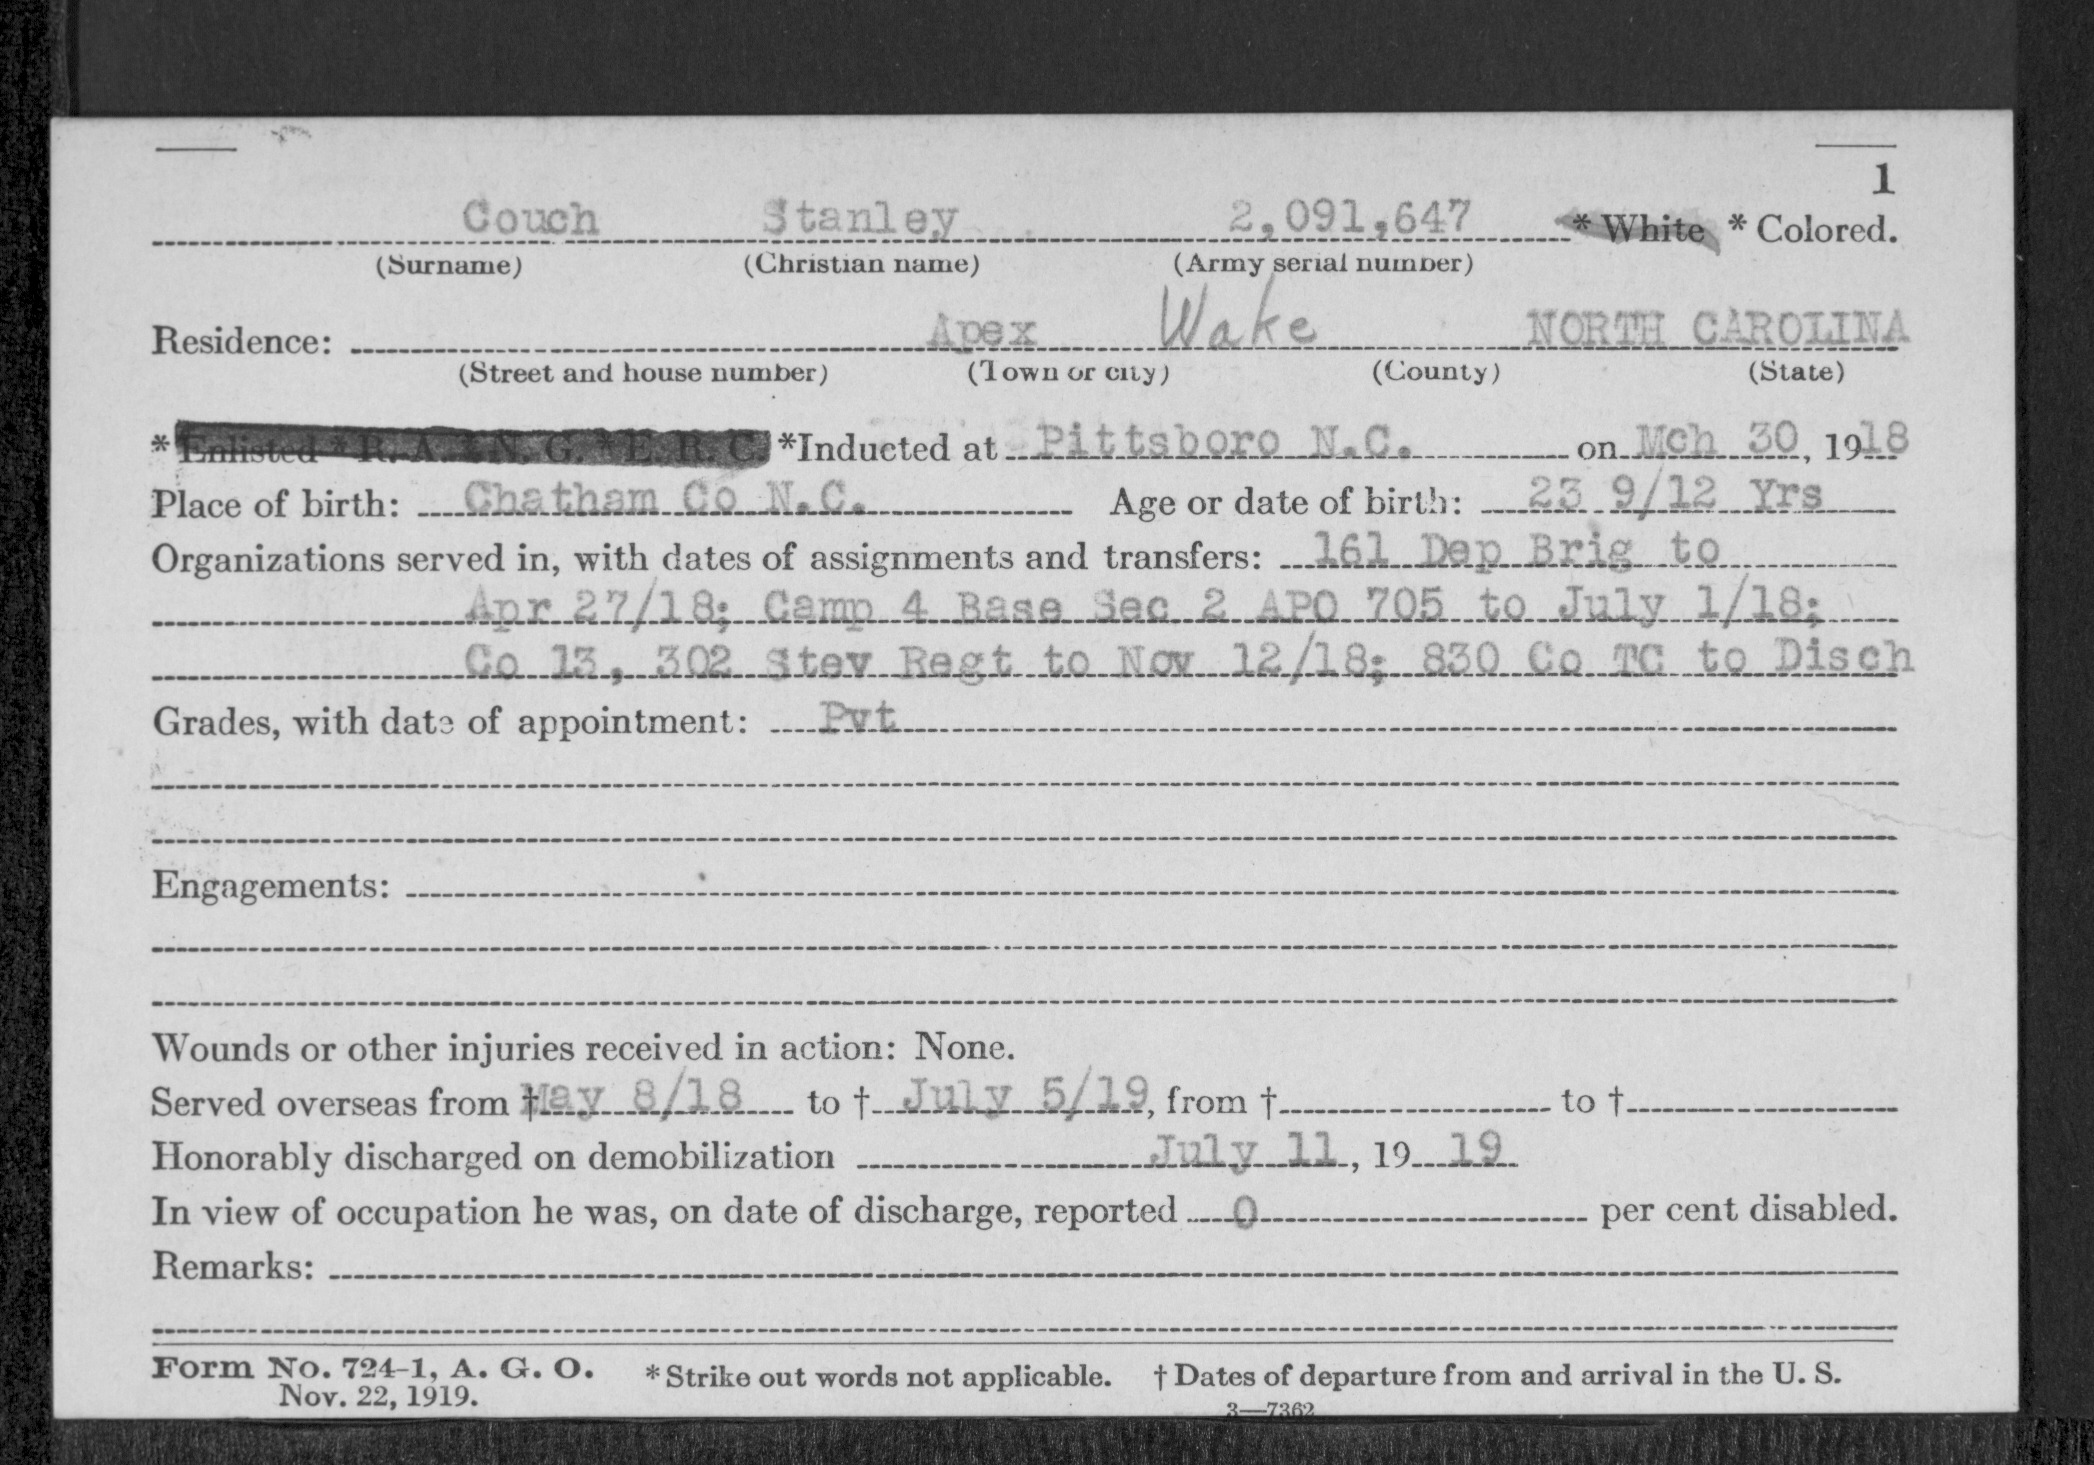 1
Couch Stanley 2,091,647 * White * Colored.
(Surname) (Christian name) (Army serial number)
Residence: Apex Wake NORTH CAROLINA
(Street and house number) (Town or city) (County) (State)
* Enlisted * R. A. * N. G. * E. R. C. *Inducted at Pittsboro N.C. on Mch 30, 1918
Place of birth: Chatham Co N.C. Age or date of birth: 23 9/12 Yrs
Organizations served in, with dates of assignments and transfers: 161 Dep Brig to
Apr 27/18; Camp 4 Base Sec 2 APO 705 to July 1/18;
Co 13, 302 Stev Regt to Nov 12/18; 830 Co TC to Disch
Grades, with date of appointment: Pvt
Engagements:
Wounds or other injuries received in action: None.
Served overseas from † May 8/18 to † July 5/19, from † to †
Honorably discharged on demobilization July 11, 19 19
In view of occupation he was, on date of discharge, reported 0 per cent disabled.
Remarks:
Form No. 724-1, A. G. O. * Strike out words not applicable. † Dates of departure from and arrival in the U. S.
Nov. 22, 1919.
3—7362